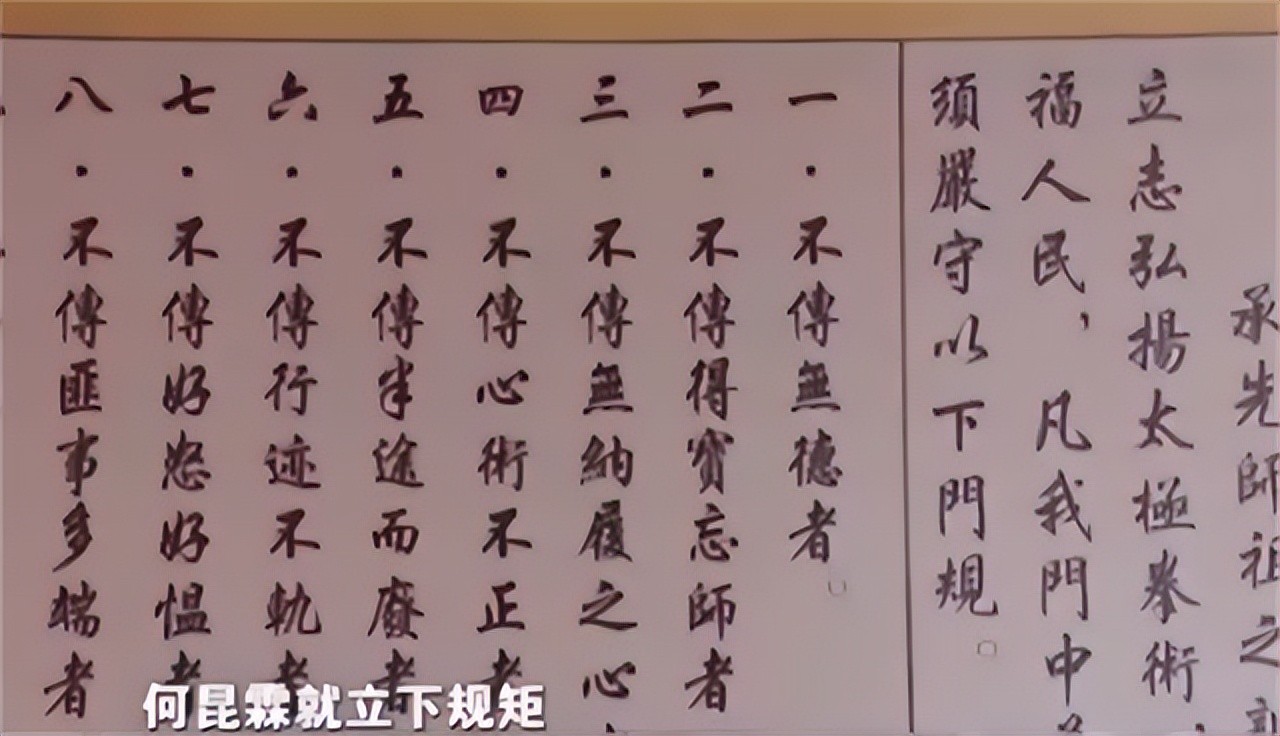 承先師祖之
立志弘揚太極拳術，
福人民，凡我門中
須嚴守以下門規。
一．不傳無德者。
二．不傳得寶忘師者
三．不傳無納履之心
四．不傳心術不正者
五．不傳半途而廢者
六．不傳行迹不軌者
七．不傳好怒好愠者
八．不傳匪事多端者
何昆霖就立下规矩